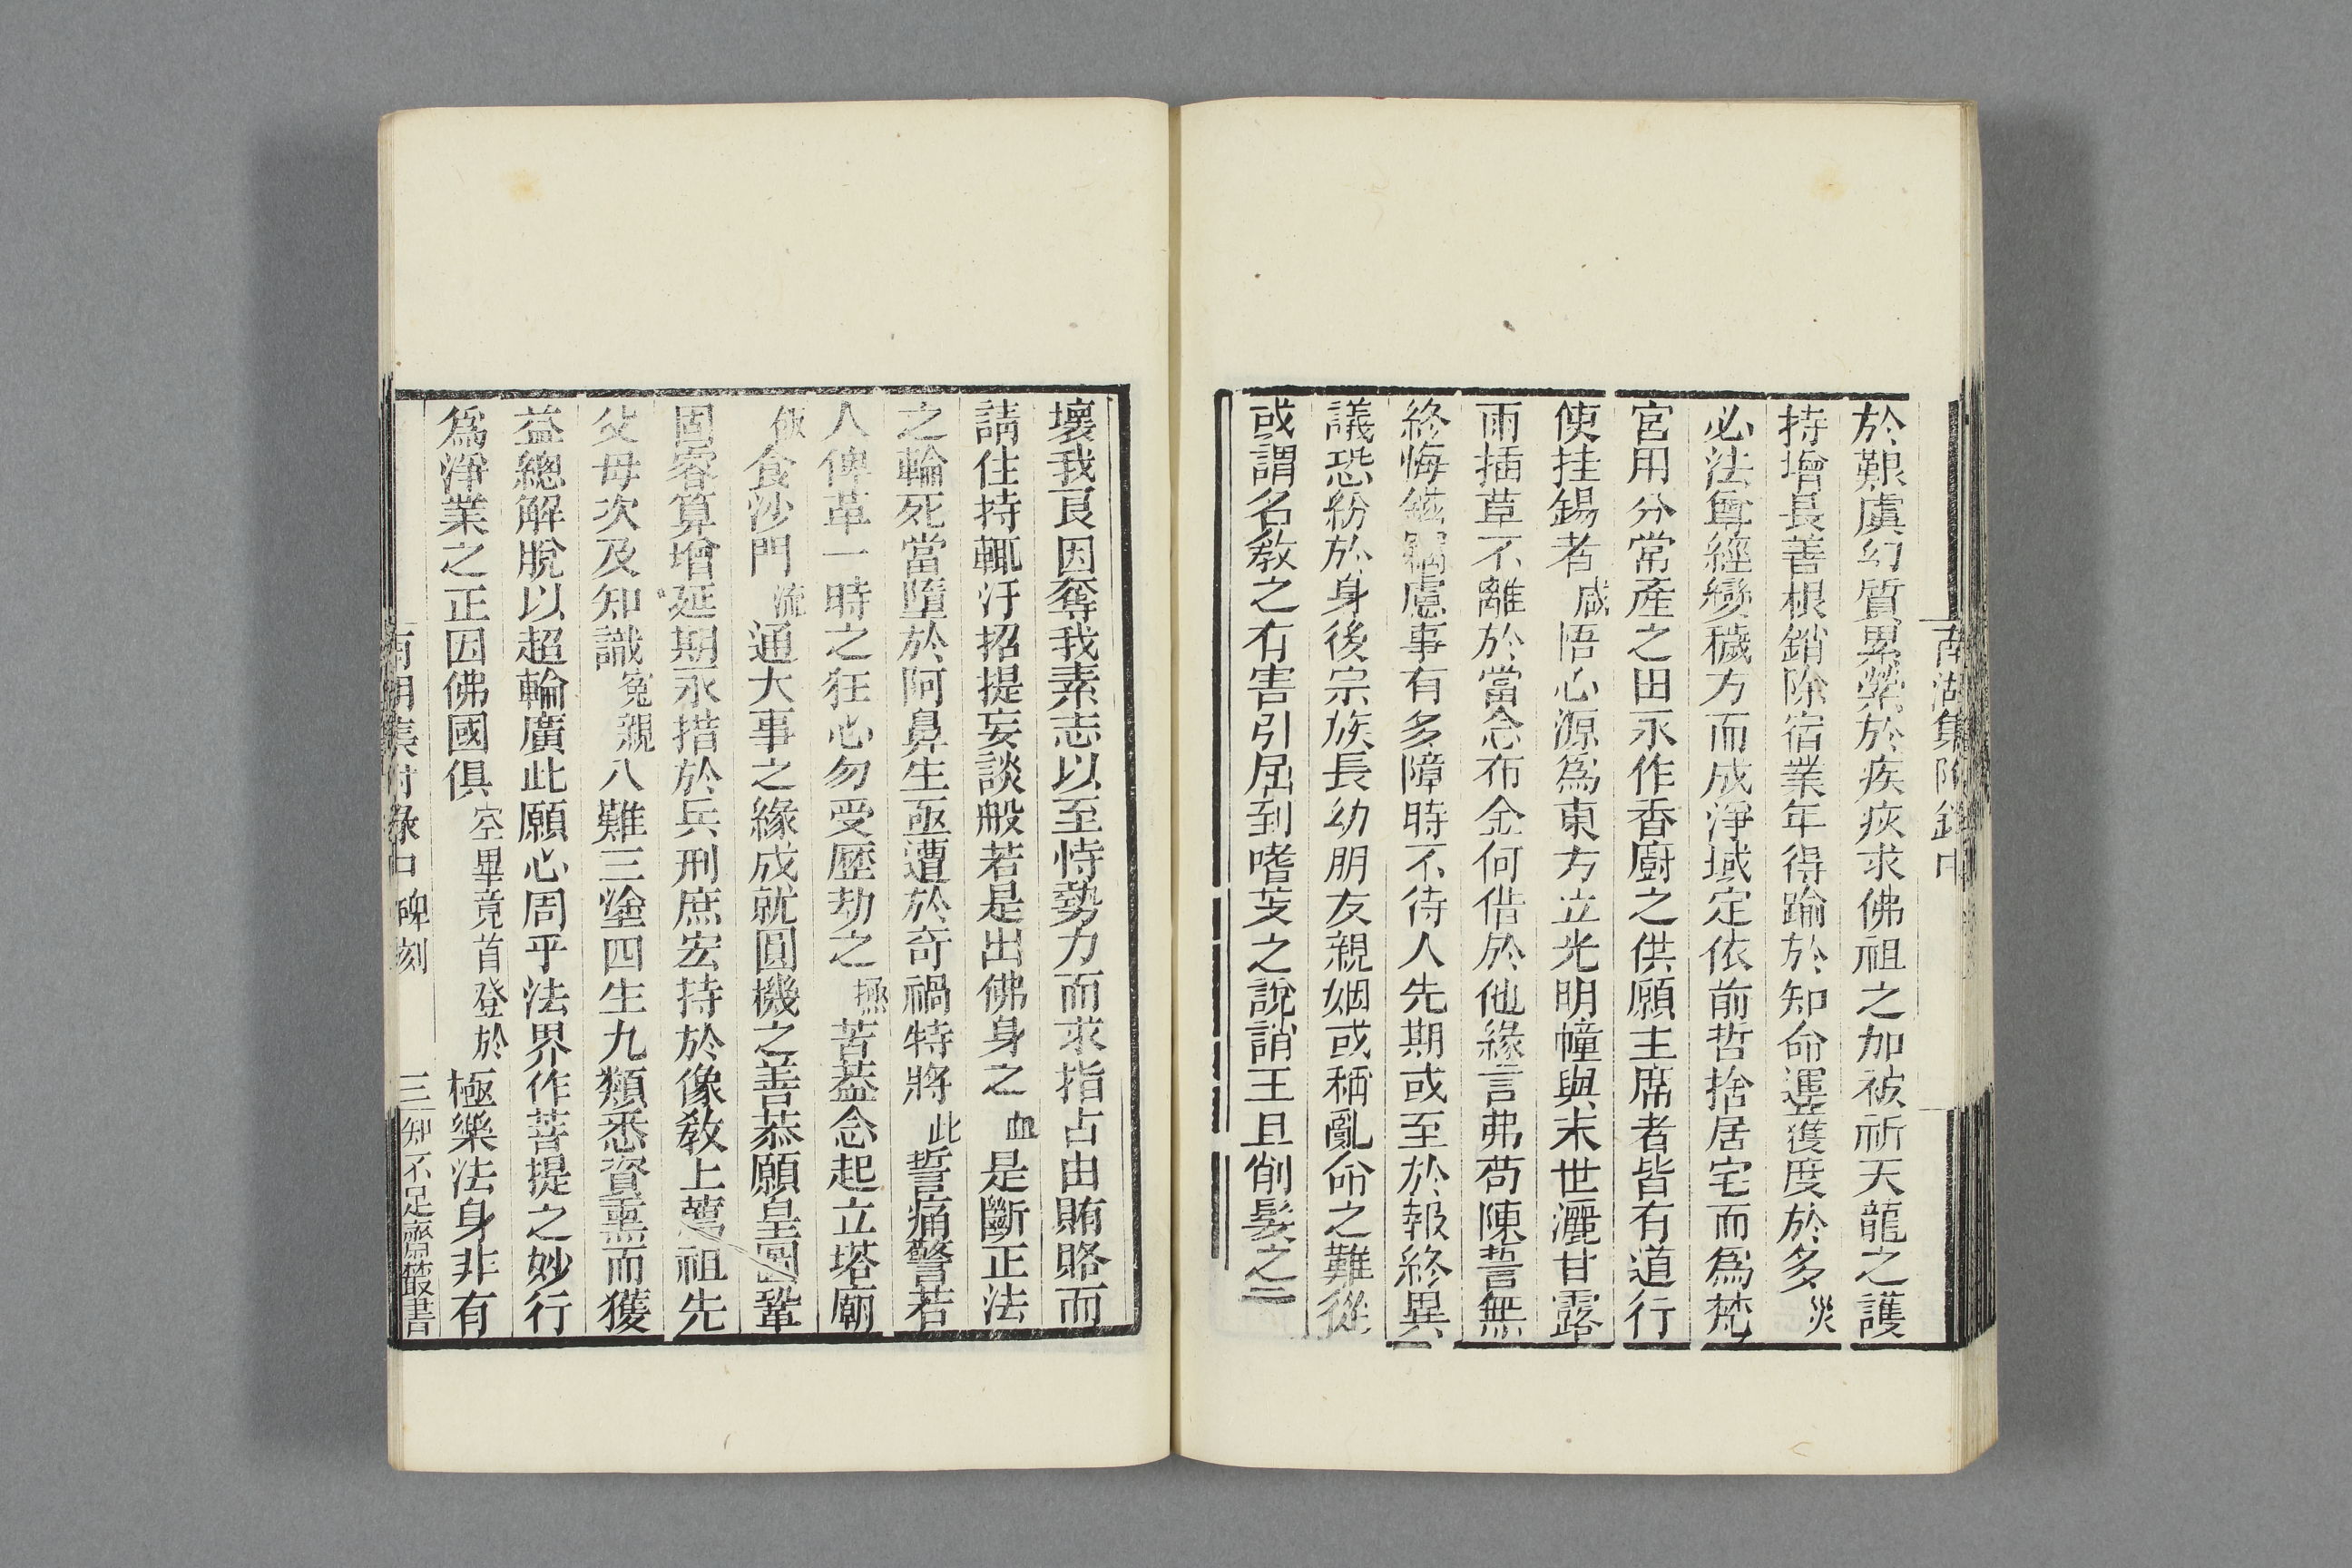 於艱虞幻質累縈於疾疢求佛祖之加被祈天龍之護
持增長善根銷除宿業年得踰於知命運獲度於多災
必法尊經變穢方而成淨域定依前哲捨居宅而爲梵
宮用分常產之田永作香廚之供願主席者皆有道行
使挂錫者咸悟心源爲東方立光明幢與末世灑甘露
雨插草不離於當念布金何偕於他緣言弗苟陳誓無
終悔慮事有多障時不待人先期或至於報終異
議恐紛於身後宗族長幼朋友親姻或稱亂命之難從
或謂名教之有害引屈到嗜芰之說誚王旦削髮之
壞我良因奪我素志以至恃勢力而求指占由賄賂而
請住持輒汙招提妄談般若是出佛身之血是斷正法
之輪死當墮於阿鼻生亟遭於奇禍特將此誓痛警若
人俾革一時之狂心勿受歷劫之極苦葢念起立塔廟
飯食沙門流通大事之緣成就圓機之善恭願皇圖鞏
固睿算增延期永措於兵刑庶宏持於像教上薦祖先
父母次及知識冤親八難三塗四生九類悉資熏而獲
益總解脫以超輪廣此願心周乎法界作菩提之妙行
爲淨業之正因佛國俱空畢竟首登於極樂法身非有
南湖集附錄中 碑刻 三 知不足齋叢書